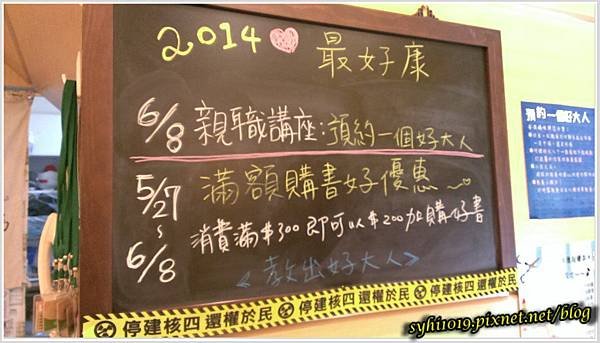 2014 最好康
6/8 親職講座:預約一個好大人
5/27 滿額購書好優惠
~
6/8 消費滿$300即可以$200加購好書
<教出好大人>
停建核四 還權於民 停建核四 還權於民 停建核四 還權於民
預約一個好大人
syhi1019.pixnet.net/blog